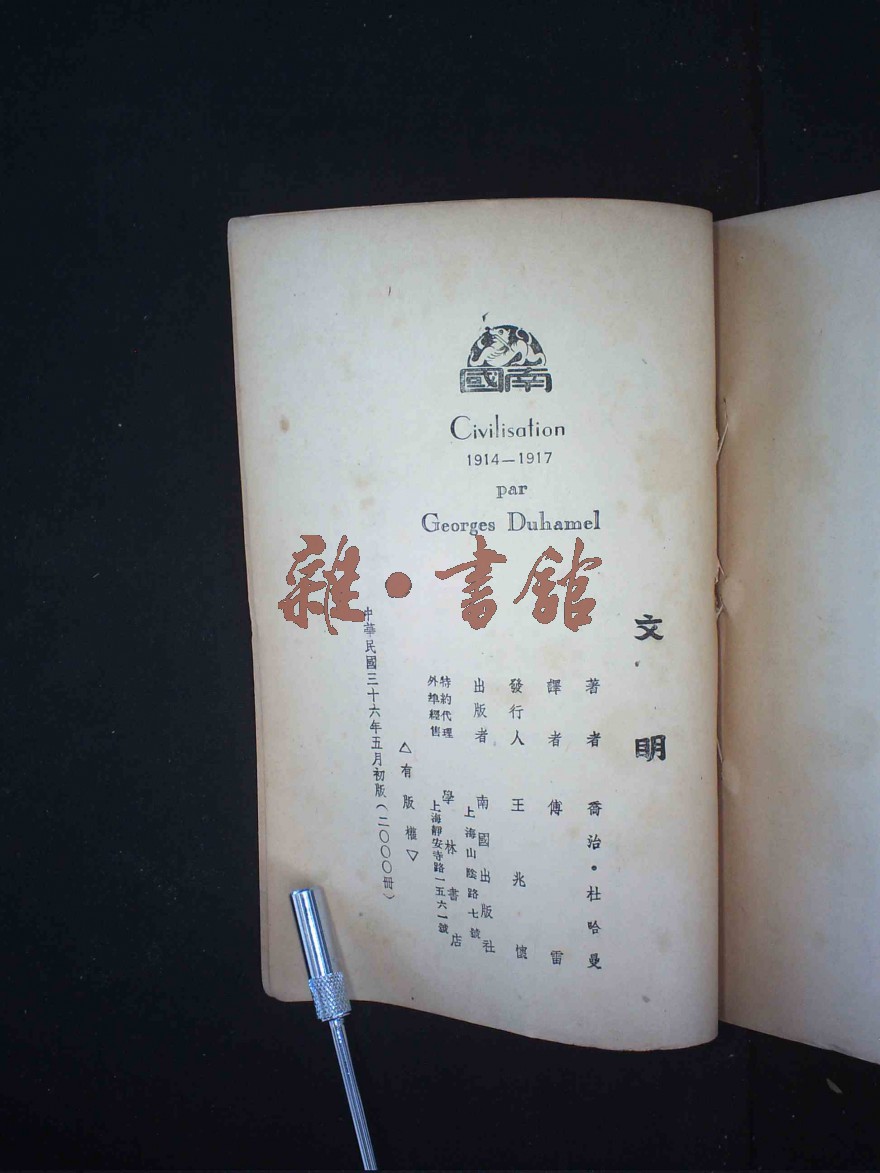 南國
Civilisation
1914—1917
par
Georges Duhamel
雜·書館
文明
著者 喬治·杜哈曼
譯者 傅雷
發行人 王兆懷
出版者 南國出版社
上海山陰路七號
特約代理
外埠經售
學林書店
上海靜安寺路一五六一號
△有版權▽
中華民國三十六年五月初版(二〇〇〇冊)